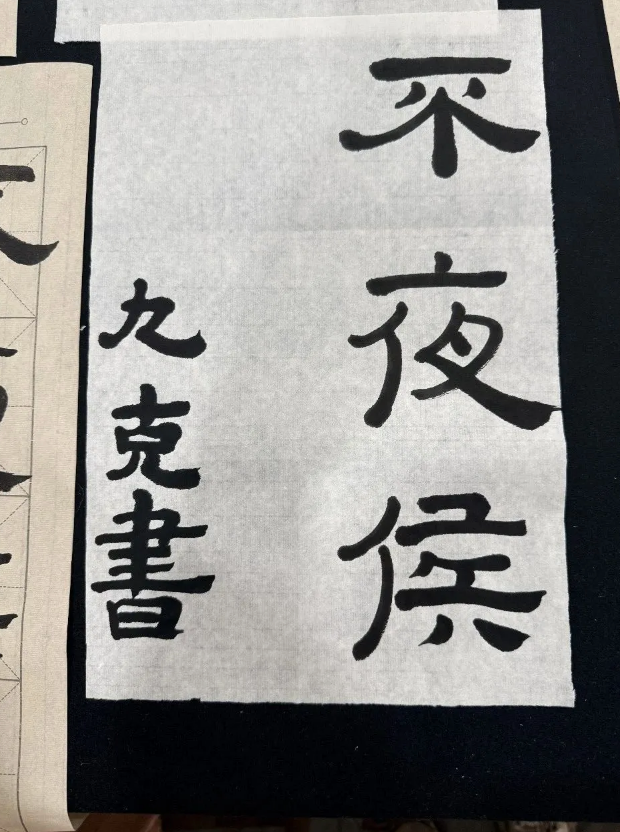 不夜侯
九克書